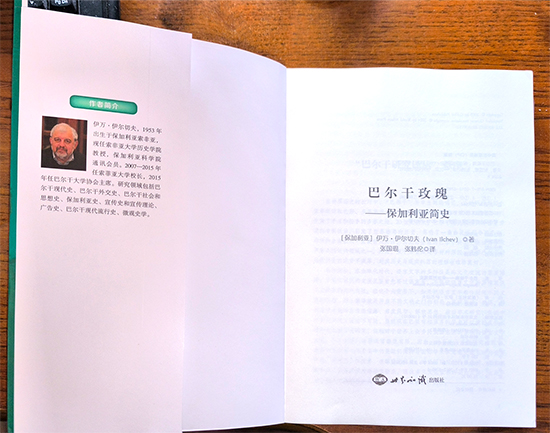 作者简介
伊万·伊尔切夫，1953年
出生于保加利亚索非亚，
现任索非亚大学历史学院
教授，保加利亚科学院
通讯会员。2007—2015年
任索非亚大学校长，2015
年任巴尔干大学协会主席。研究领域包括巴
尔干现代史、巴尔干外交史、巴尔干社会和
思想史、保加利亚史、宣传史和宣传理论、
广告史、巴尔干现代流行史、微观史学。
巴尔干玫瑰
——保加利亚简史
［保加利亚］伊万·伊尔切夫（Ivan Ilchev）◎著
◎译
世界知识出版社